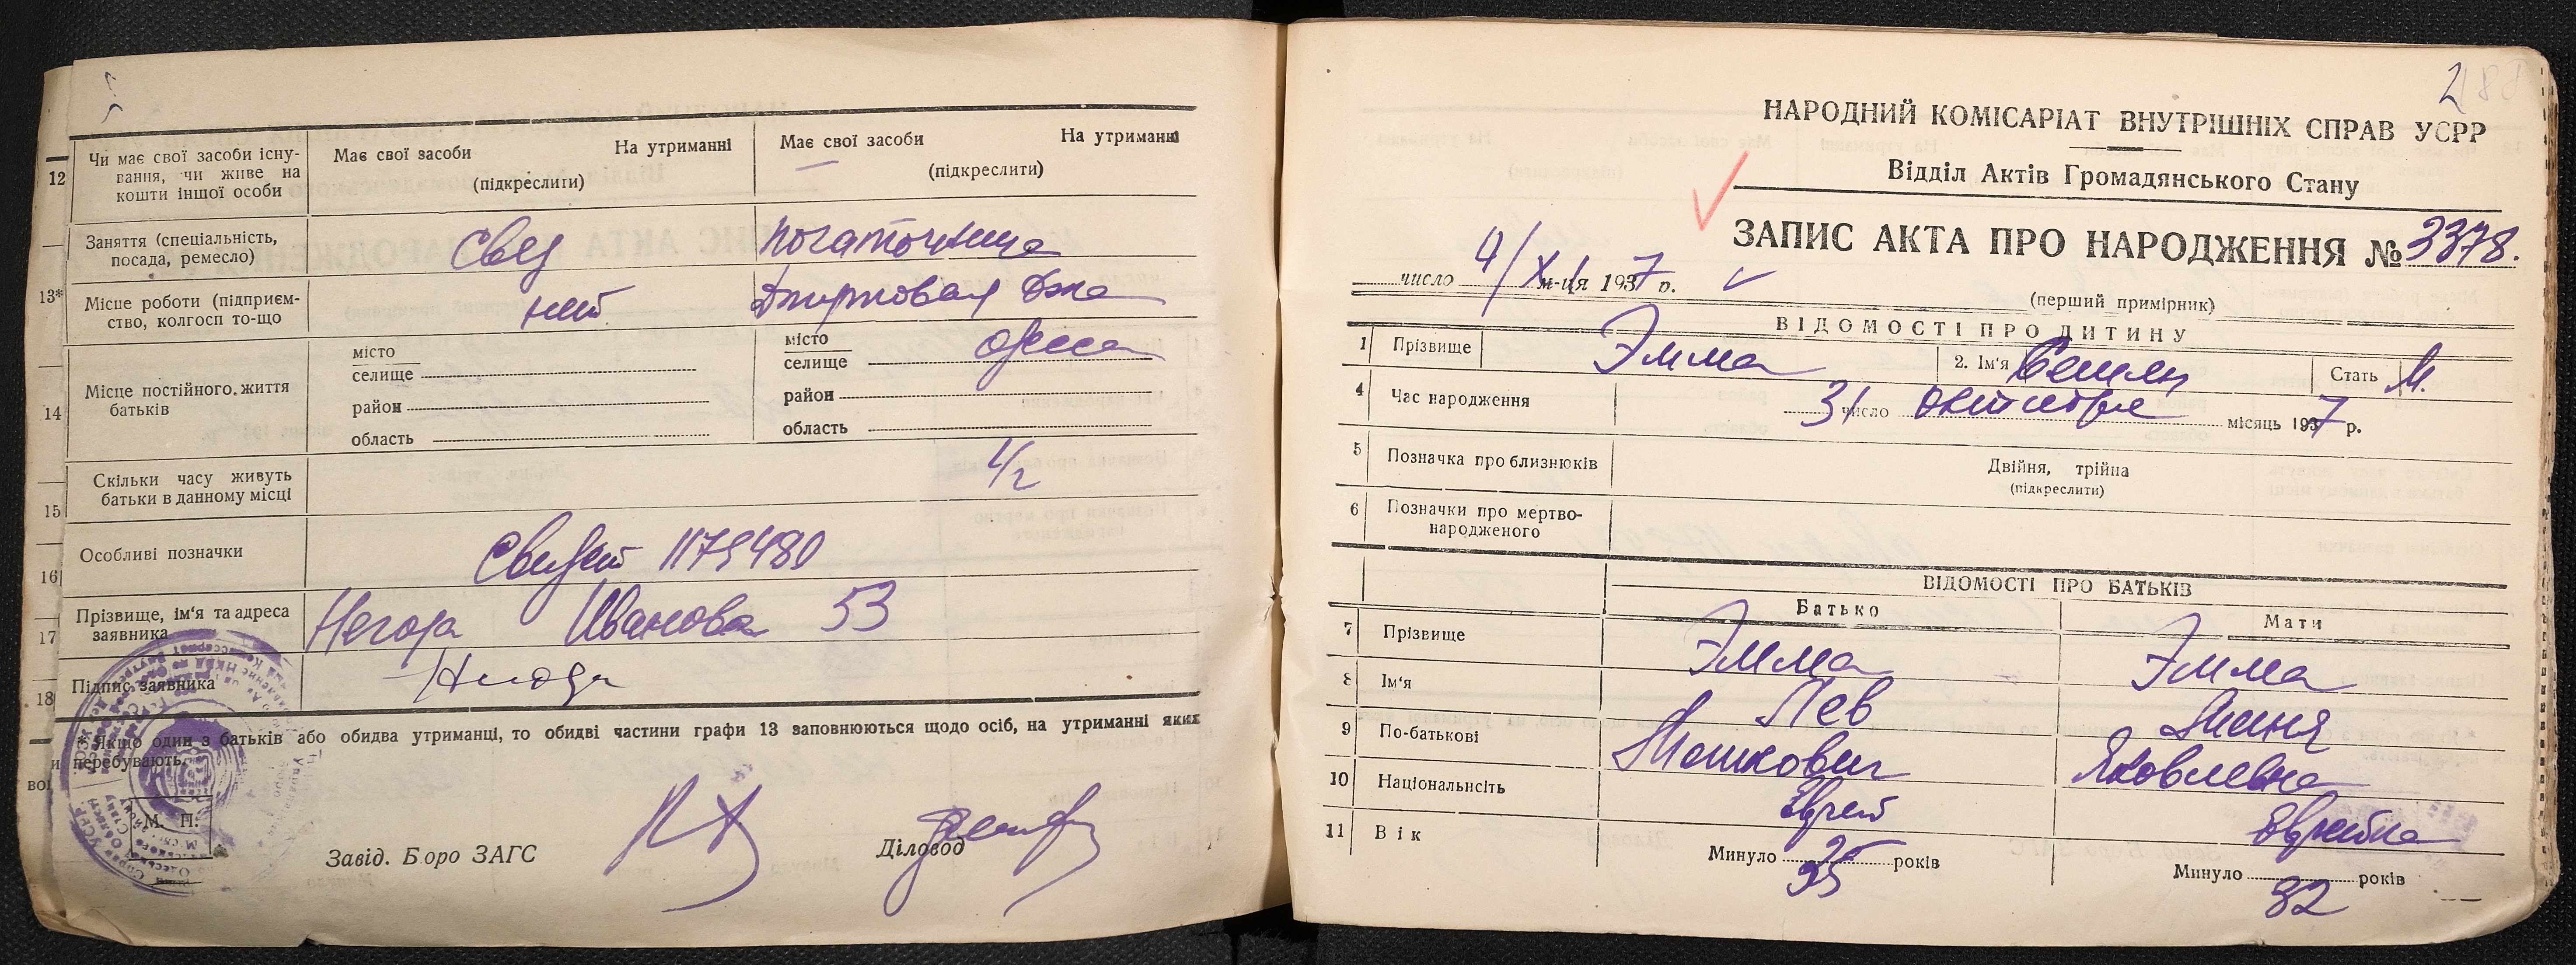 12
Чи має свої засоби існу-
вання, чи живе на
кошти іншої особи
Має свої засоби На утриманні
(підкреслити)
Має свої засоби На утриманні
(підкреслити)
13*
Заняття (спеціальність,
посада, ремесло)
Місце роботи (підприєм-
ство, колгосп то-що
нет
14
Місце постійного життя
батьків
місто
селище
район
область
місто
селище
Одесса
район
область
15
Скільки часу живуть
батьки в данному місці
16
Особливі позначки
Свидет 1179480
17
Прізвище, ім'я та адреса
заявника
Иванова 53
18
Підпис заявника
* Якщо один з батьків або обидва утриманці, то обидві частини графи 13 заповнюються щодо осіб, на утриманні яких
перебувають.
М. П.
Завід. Бюро ЗАГС
Діловод
2
НАРОДНИЙ КОМІСАРІАТ ВНУТРІШНІХ СПРАВ УСРР
Відділ Актів Громадянського Стану
ЗАПИС АКТА ПРО НАРОДЖЕННЯ № 3378.
число 4/XI м-ця 1937 р.
(перший примірник)
ВІДОМОСТІ ПРО ДИТИНУ
1 Прізвище Эмма 2. Ім'я Семен Стать М.
4 Час народження 31 число октября місяць 1937 р.
5 Позначка про близнюків Двійня, трійна
(підкреслити)
6 Позначки про мертво-
народженого
ВІДОМОСТІ ПРО БАТЬКІВ
Батько Мати
7 Прізвище Эмма Эмма
8 Ім'я Лев
9 По-батькові Мошкович Яковлевна
10 Національнсіть Еврей Еврейка
11 Вік Минуло 35 років Минуло 32 років